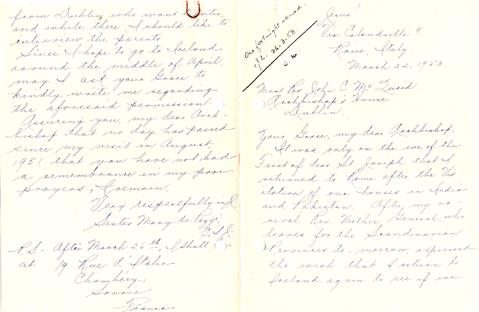 Jesus!
Via Calandrelli 9
Rome, Italy.
March 22, 1953
Most Rev. John C. McQuaid
Archbishop's House
Dublin
Your Grace, my dear Archbishop,
It was only on the eve of the
Feast of dear St Joseph that I
returned to Rome after the Vis-
itation of our houses in India
and Pakistan. After my ar-
rival Rev. Mother General, who
leaves for the Scandinavian
Provinces to-morrow, expressed
the wish that I return to
Ireland again to see if we
from Dublin who want to enter,
and while there I should like to
interview the parents.
Since I hope to go to Ireland
around the middle of April,
may I ask your Grace to
kindly write me regarding
the aforesaid permission.
Assuring you, my dear Arch-
bishop that no day has passed
since my visit in August,
1951 that you have not had
a remembrance in my poor
prayers, I remain
Very respectfully in
Sister Mary de
P.S. After March 26th, I shall
at 19 Rue
Chambéry
Savoie
France